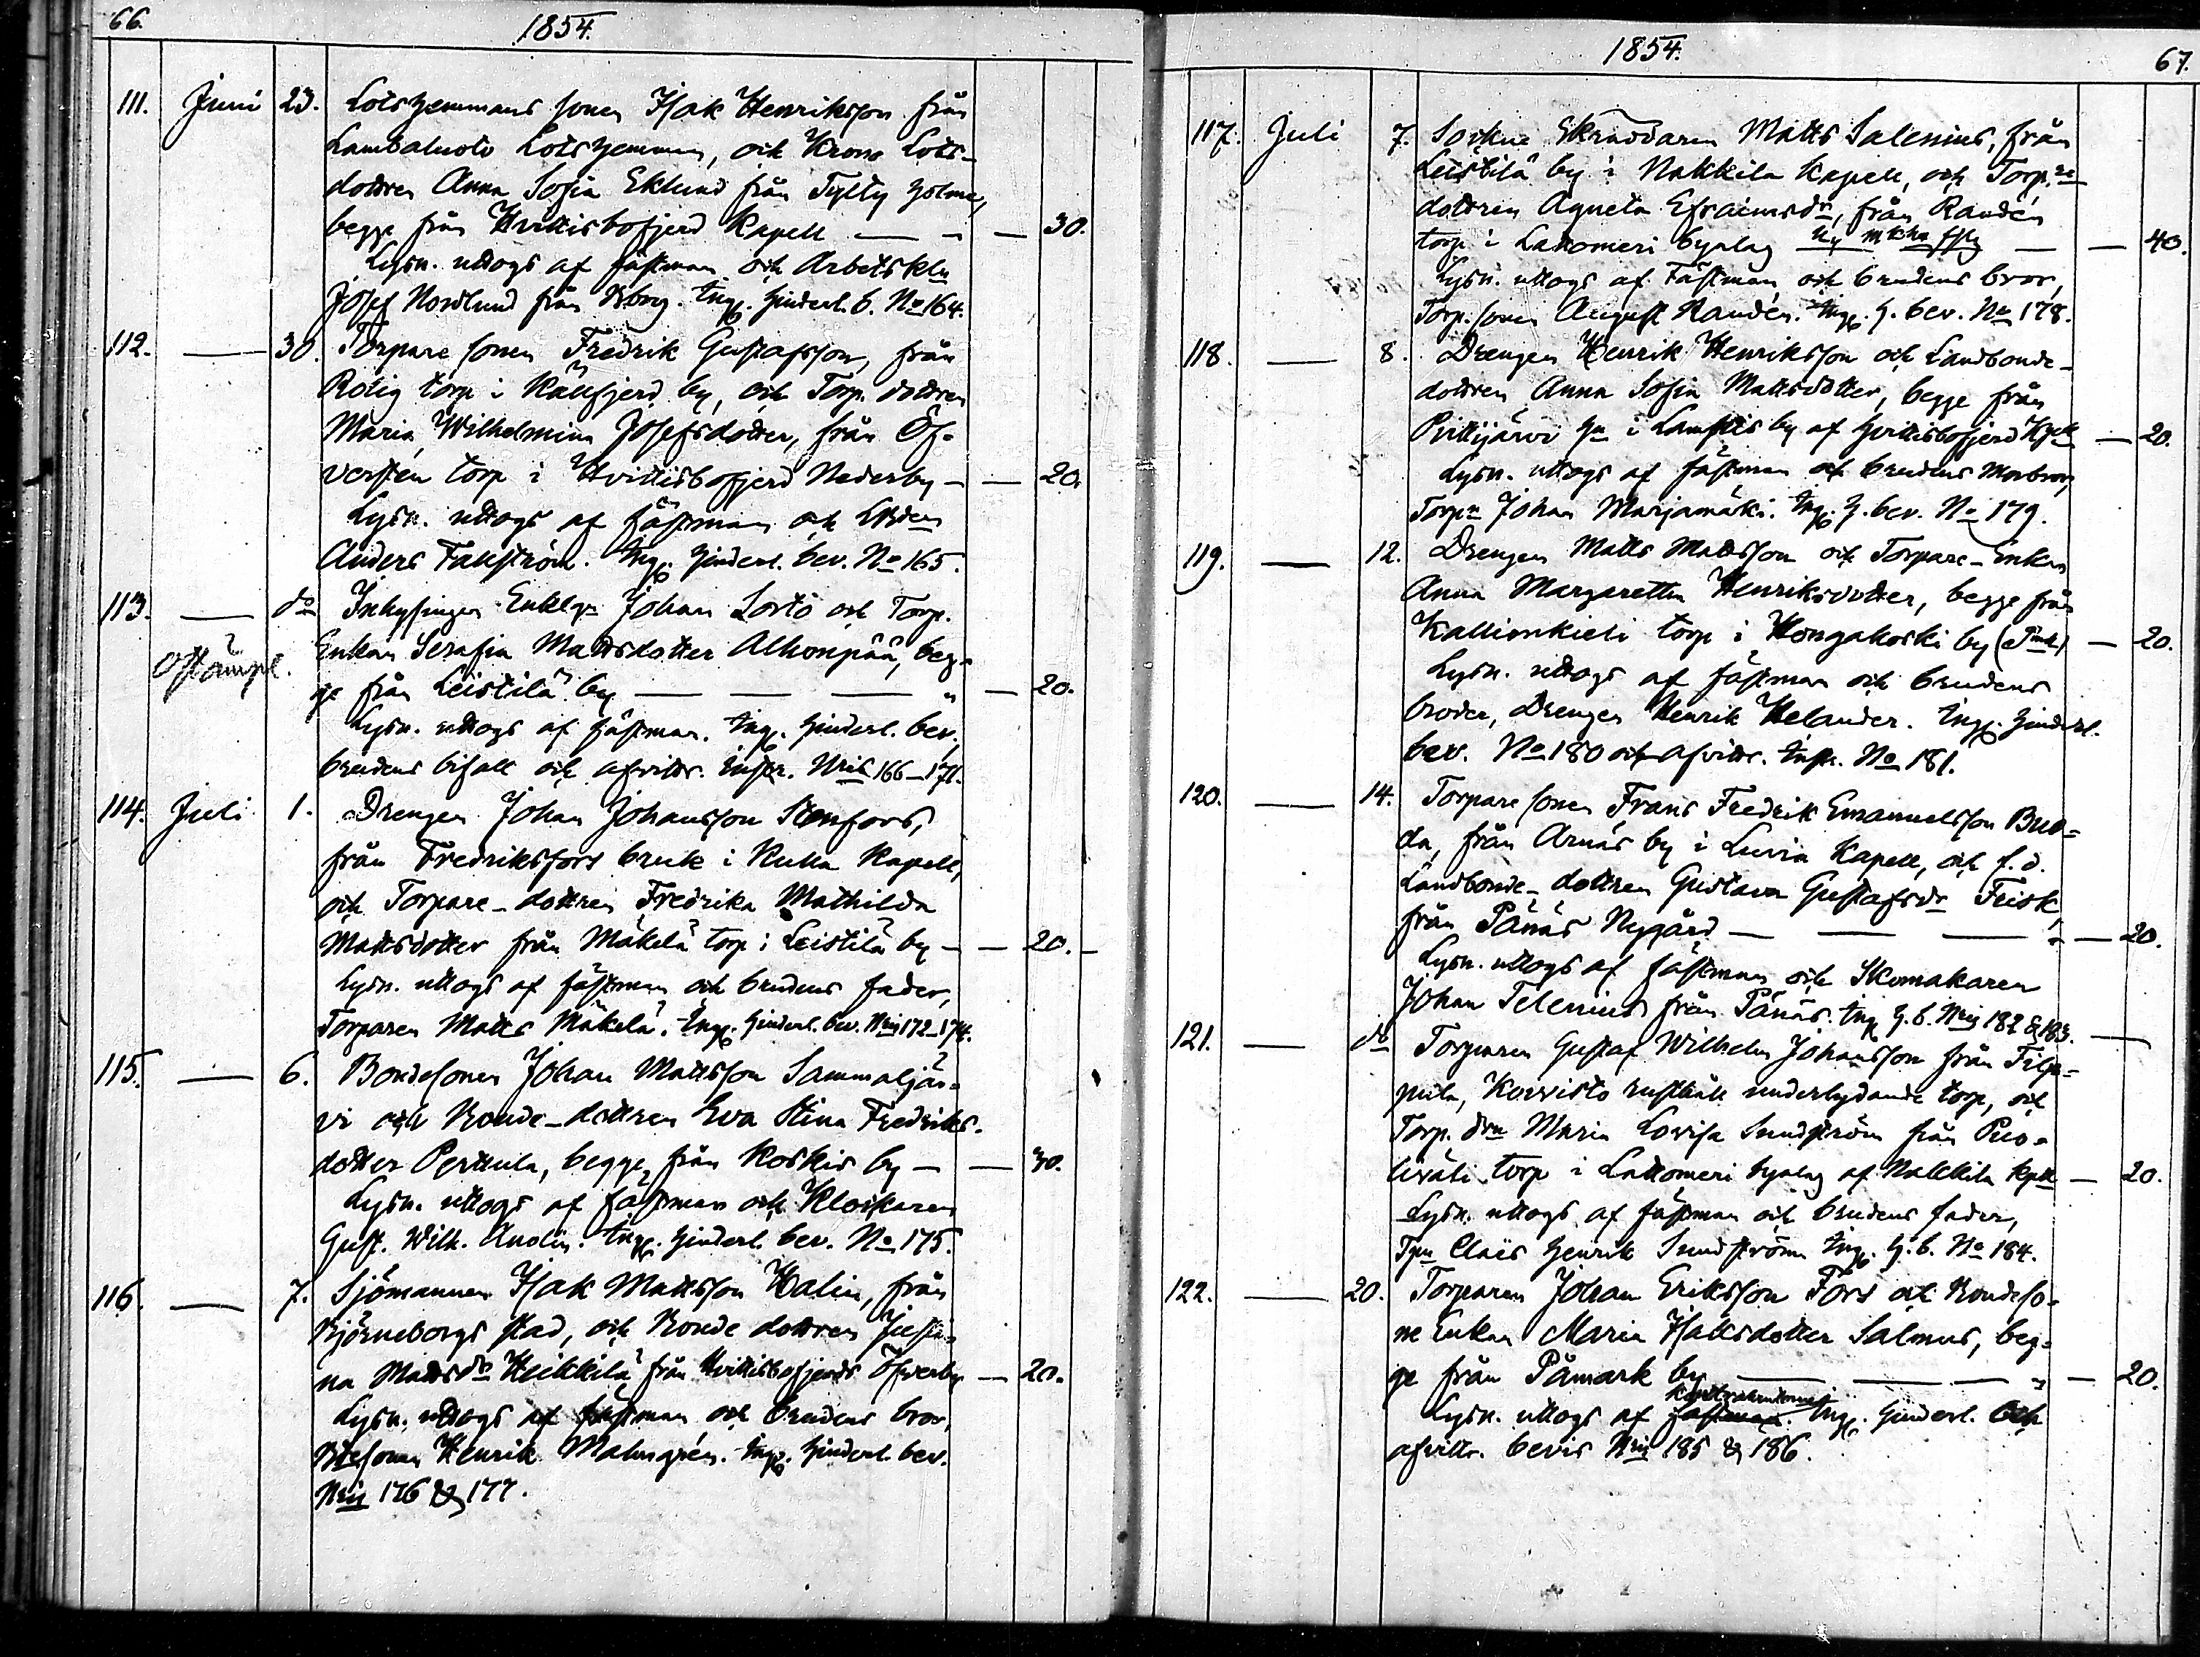 66.
1854.
111. Juni 23. Lotshemmans sonen Isak Henriksson från
Lambaluoto Lotshemman, och Krono Lots-
dottren Anna Sofia Eklund från Tylty holme,
begge från Hvittisbofjerd Kapell — " — 30.
Lysn. uttogs af fästman och Arbetskln
Josef Nordlund från Bbrg. Ing. hinderl. b. No 164.
112. — 30. Torpare sonen Fredrik Gustafsson, från
Rolig torp i Källfjerd by, och Torp. dottren
Maria Wilhelmina Josefsdotter, från Öf-
versten torp i Hvittisbofjerd Nederby — — 20.
Lysn. uttogs af fästman och
Anders Fallström. Ing. hinderl. bev. No 165.
113. — do Inhysingen Enkl. Johan Sortö och Torp.
Ostämpl. Enkan Serafia Mattsdotter Alhonpää, beg-
ge från Leistilä by — — — " — 20.
Lysn. uttogs af fästman. Ing. hinderl. bev.,
brudens bifall och afvittr. instr. Nris 166–171.
114. Juli 1. Drengen Johan Johansson Stenfors,
från Fredriksfors bruk i Kulla Kapell,
och Torpare-dottren Fredrika Mathilda
Mattsdotter från Mäkelä torp i Leistilä by — — 20. —
Lysn. uttogs af fästman och brudens fader,
Torparen Matts Mäkelä. Ing. hinderl. bev. Nris 172–174.
115. — 6. Bondesonen Johan Mattsson Sammaljär-
vi och Bonde-dottren Eva Stina Fredriks-
dotter Perttula, begge från Koskis by — — 30.
Lysn. uttogs af fästman och Klockaren
Gust. Wilh. Anolin. Ing. hinderl. bev. No 175.
116. — 7. Sjömannen Isak Mattsson Halin, från
Björneborgs stad, och Bonde dottren Justi-
na Mattsdr Heikkilä från Hvittisbofjerds Öfverby — 20.
Lysn. uttogs af fästman och brudens bror,
Bdesonen Henrik Malmgrén. Ing. hinderl. bev.
Nris 176 & 177.
1854.
67.
117. Juli 7. Sockne Skräddaren Matts Salenius, från
Leistilä by i Nakkila Kapell, och Torp.re
dottren Agneta Efraimsdr, från Randén
torp i Lattomeri bylag — — 40.
Lysn. uttogs af Fästman och brudens bror,
Torp. sonen August Randén. Ing. h. bev. No 178.
118. — 8. Drengen Henrik Henriksson och Landbonde-
dottren Anna Sofia Mattsdotter, begge från
Pirttijärvi hn i Lamstis by af Hvittisbofjerd Kpll — 20.
Lysn. uttogs af fästman och brudens Morbror,
Torpn Johan Marjamäki. Ing. h. bev. No 179.
119. — 12. Drengen Matts Mattsson och Torpare-Enkan
Anna Margaretha Henriksdotter, begge från
Kallionkieli torp i Hongakoski by — 20.
Lysn. uttogs af fästman och brudens
broder, Drengen Henrik Helander. Ing. hinderl.
bev. No 180 och afvittr. instr. No 181.
120. — 14. Torpare sonen Frans Fredrik Emanuelsson Buo-
da, från Arnäs by i Luvia Kapell, och f.d.
Landbonde-dottren Gustava Gustafsdr Frisk,
från Pänäs Nygård — — — " — 20.
Lysn. uttogs af fästman och Skomakaren
Johan Telenius från Pänäs. Ing. h. b. Nris 182 & 183.
121. — do Torparen Gustaf Wilhelm Johansson från Filp-
pula, Korvisto rusthåll underlydande torp, och
Torp. drn Maria Lovisa Sundström från Puo-
liväli torp i Lattomeri bylag af Nakkila Kpll — 20.
Lysn. uttogs af fästman och brudens fader,
Tpn Claës Henrik Sundström Ing. h. b. No 184.
122. — 20. Torparen Johan Eriksson Fors och Bondeso-
ne Enkan Maria Isaksdotter Salmus, beg-
ge från Påmark by — — — " — 20.
kontrahenterne
Lysn. uttogs af fästman. Ing. hinderl. och
afvittr. bevis Nris 185 & 186.